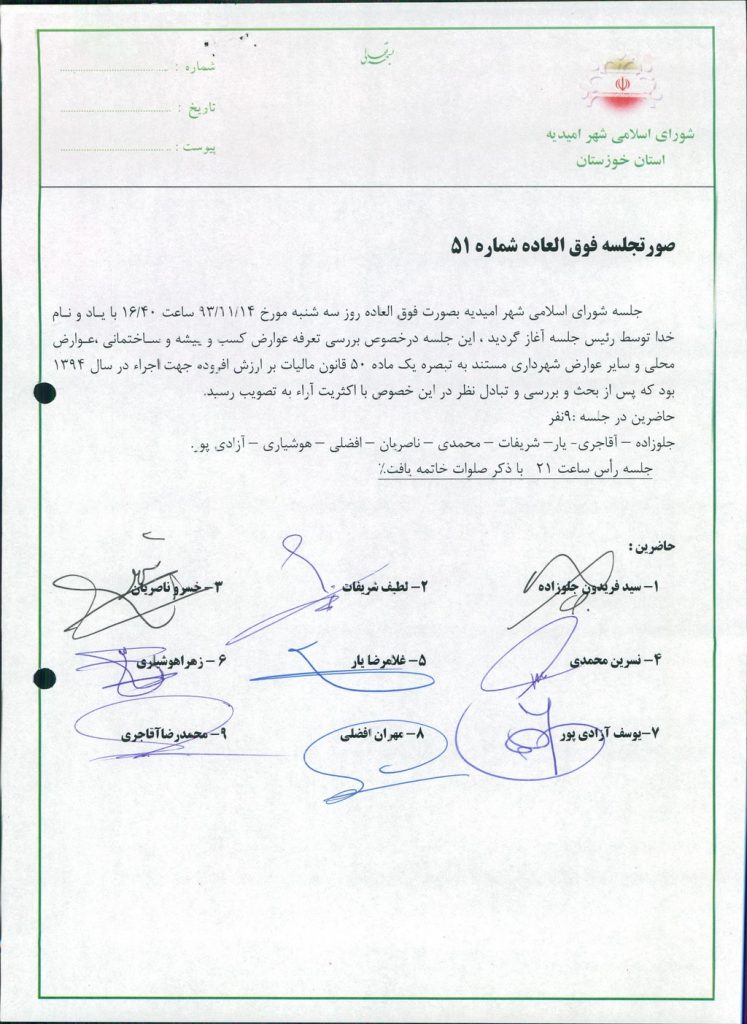 بسمه تعالی
شورای اسلامی شهر امیدیه
استان خوزستان
شماره : ........................
تاریخ : ........................
پیوست : ........................
صورتجلسه فوق العاده شماره ۵۱
جلسه شورای اسلامی شهر امیدیه بصورت فوق العاده روز سه شنبه مورخ ۹۳/۱۱/۱۴ ساعت ۱۶/۴۰ با یاد و نام
خدا توسط رئیس جلسه آغاز گردید ، این جلسه درخصوص بررسی تعرفه عوارض کسب و پیشه و ساختمانی ،عوارض
محلی و سایر عوارض شهرداری مستند به تبصره یک ماده ۵۰ قانون مالیات بر ارزش افزوده جهت اجراء در سال ۱۳۹۴
بود که پس از بحث و بررسی و تبادل نظر در این خصوص با اکثریت آراء به تصویب رسید.
حاضرین در جلسه :۹نفر
جلوزاده – آقاجری- یار– شریفات – محمدی – ناصریان – افضلی – هوشیاری – آزادی پور.
جلسه رأس ساعت ۲۱ با ذکر صلوات خاتمه یافت٪
حاضرین :
۱- سید فریدون جلوزاده ۲- لطیف شریفات ۳- خسرو ناصریان
۴- نسرین محمدی ۵- غلامرضا یار ۶ - زهراهوشیاری
۷-یوسف آزادی پور ۸- مهران افضلی ۹- محمدرضاآقاجری